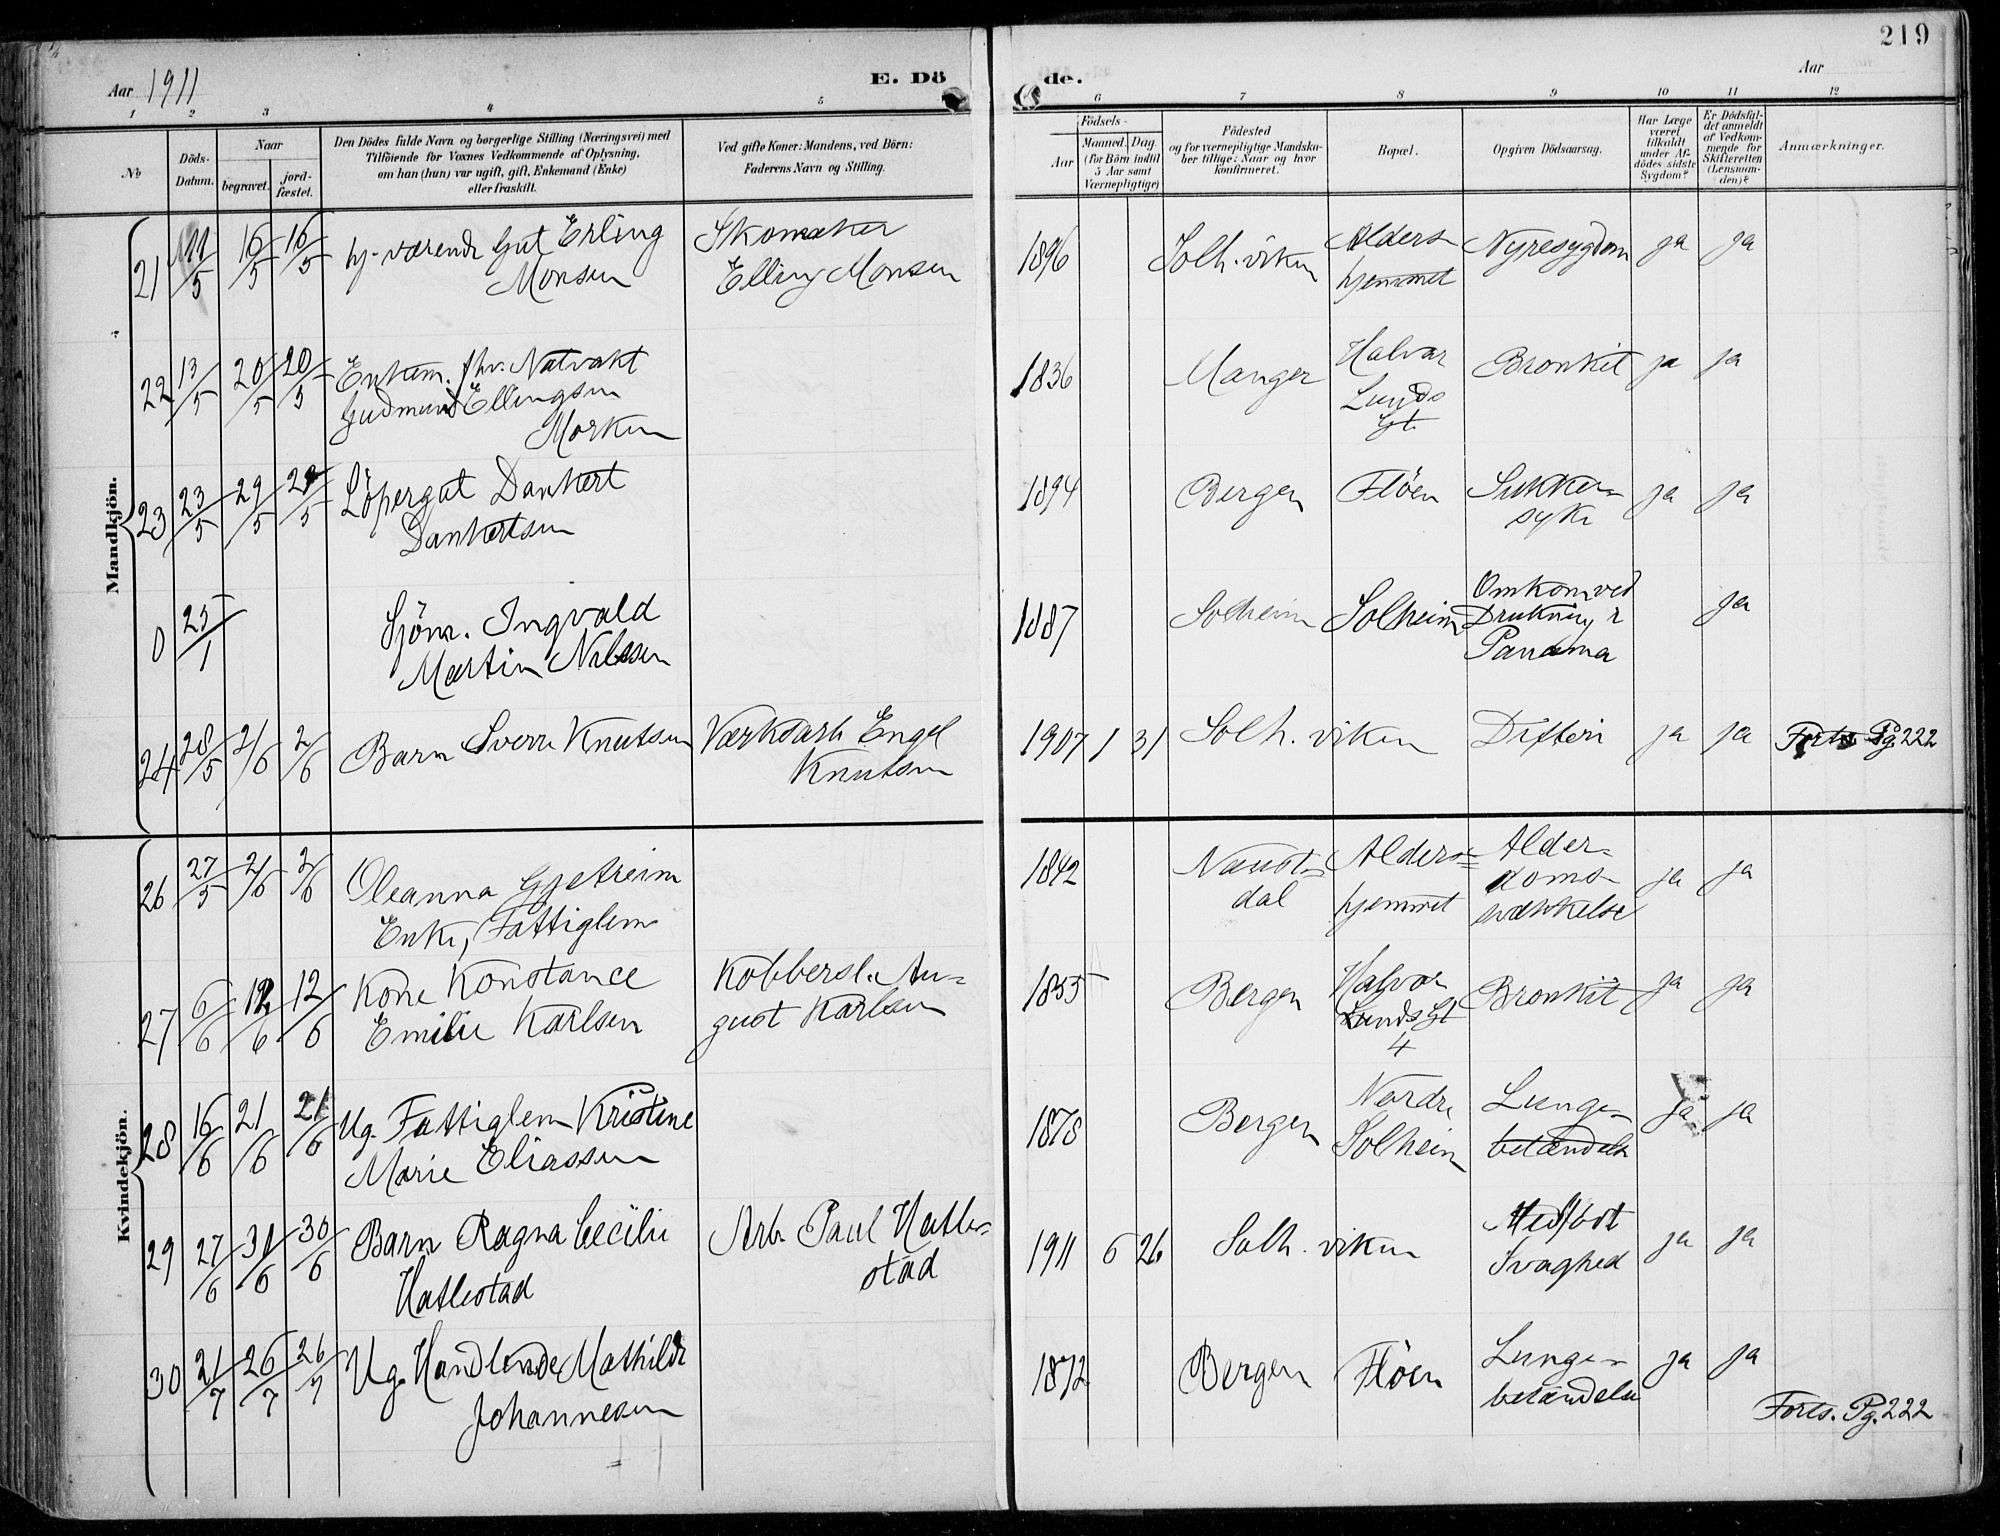 219
Aar 1911 E. Dö de. Aar
1 2 3 4 5 6 7 8 9 10 11 12
No
Döds-
Datum.
Naar
begravet.
jord-
fæstet.
Den Dödes fulde Navn og borgerlige Stilling (Næringsvei) med
Tilföiende for Voxnes Vedkommende af Oplysning,
om han (hun) var ugift, gift, Enkemand (Enke)
eller fraskilt.
Ved gifte Koner: Mandens, ved Börn:
Faderens Navn og Stilling.
Födsels-
Aar
Maaned. Dag.
(for Börn indtil
5 Aar samt
Værnepligtige)
Födested
og for værnepligtige Mandska-
ber tillige: Naar og hvor
konfirmeret.
Bopæl.
Opgiven Dödsaarsag.
Har Læge
været
tilkaldt
under Af-
dödes sidste
Sygdom?
Er Dödsfal-
det anmeldt
af Vedkom-
mende for
Skifteretten
(Lensman-
den)?
Anmærkninger.
Mandkjön.
21 11/5 16/5 16/5 hj-værende Gut Erling Skomaker 1896 Solh.viken Alders Nyresygdom ja ja
Monsen Elling Monsen hjemmet
22 13/5 20/5 20/5 Enkem. fhv. Natvakt 1836 Manger Halvar Bronkit ja ja
Gudmund Ellingsen Lunds
Morken Gt.
23 23/5 29/5 29/5 Löpergut Dankert 1894 Bergen Flöen Sukker- ja ja
Dankertsen syke
0 25/1 Sjöm. Ingvald 1887 Solheim Solheim Omkom ved ja
Martin Nilsen Drukning i
Panama
24 28/5 2/6 2/6 Barn Sverre Knutsen Værkdarb Engel 1907 1 31 Solh.viken Difteri ja ja Forts Pg. 222
Knutsen
Kvindekjön.
26 27/5 2/6 2/6 Oleanna Gjetreim 1842 Naust- Alders- Alder- ja ja
Enke, Fattiglem dal hjemmet doms-
svækkelse
27 6/6 12/6 12/6 Kone Konstance Kobbersl. Au- 1855 Bergen Halvor Bronkit ja ja
Emilie Karlsen gust Karlsen Lunds Gt
4
28 16/6 21/6 21/6 Ug. Fattiglem Kristine 1878 Bergen Nordre Lunge- ja ja
Marie Eliassen Solheim betændelse
29 27/6 30/6 30/6 Barn Ragna Cecilie Arb. Paul Hatle- 1911 6 26 Solh.viken Medfödt ja ja
Hatlestad stad Svaghed
30 21/7 26/7 26/7 Ug. Handlende Mathilde 1872 Bergen Flöen Lunge- ja ja
Johannesen betændelse
Forts. Pg. 222